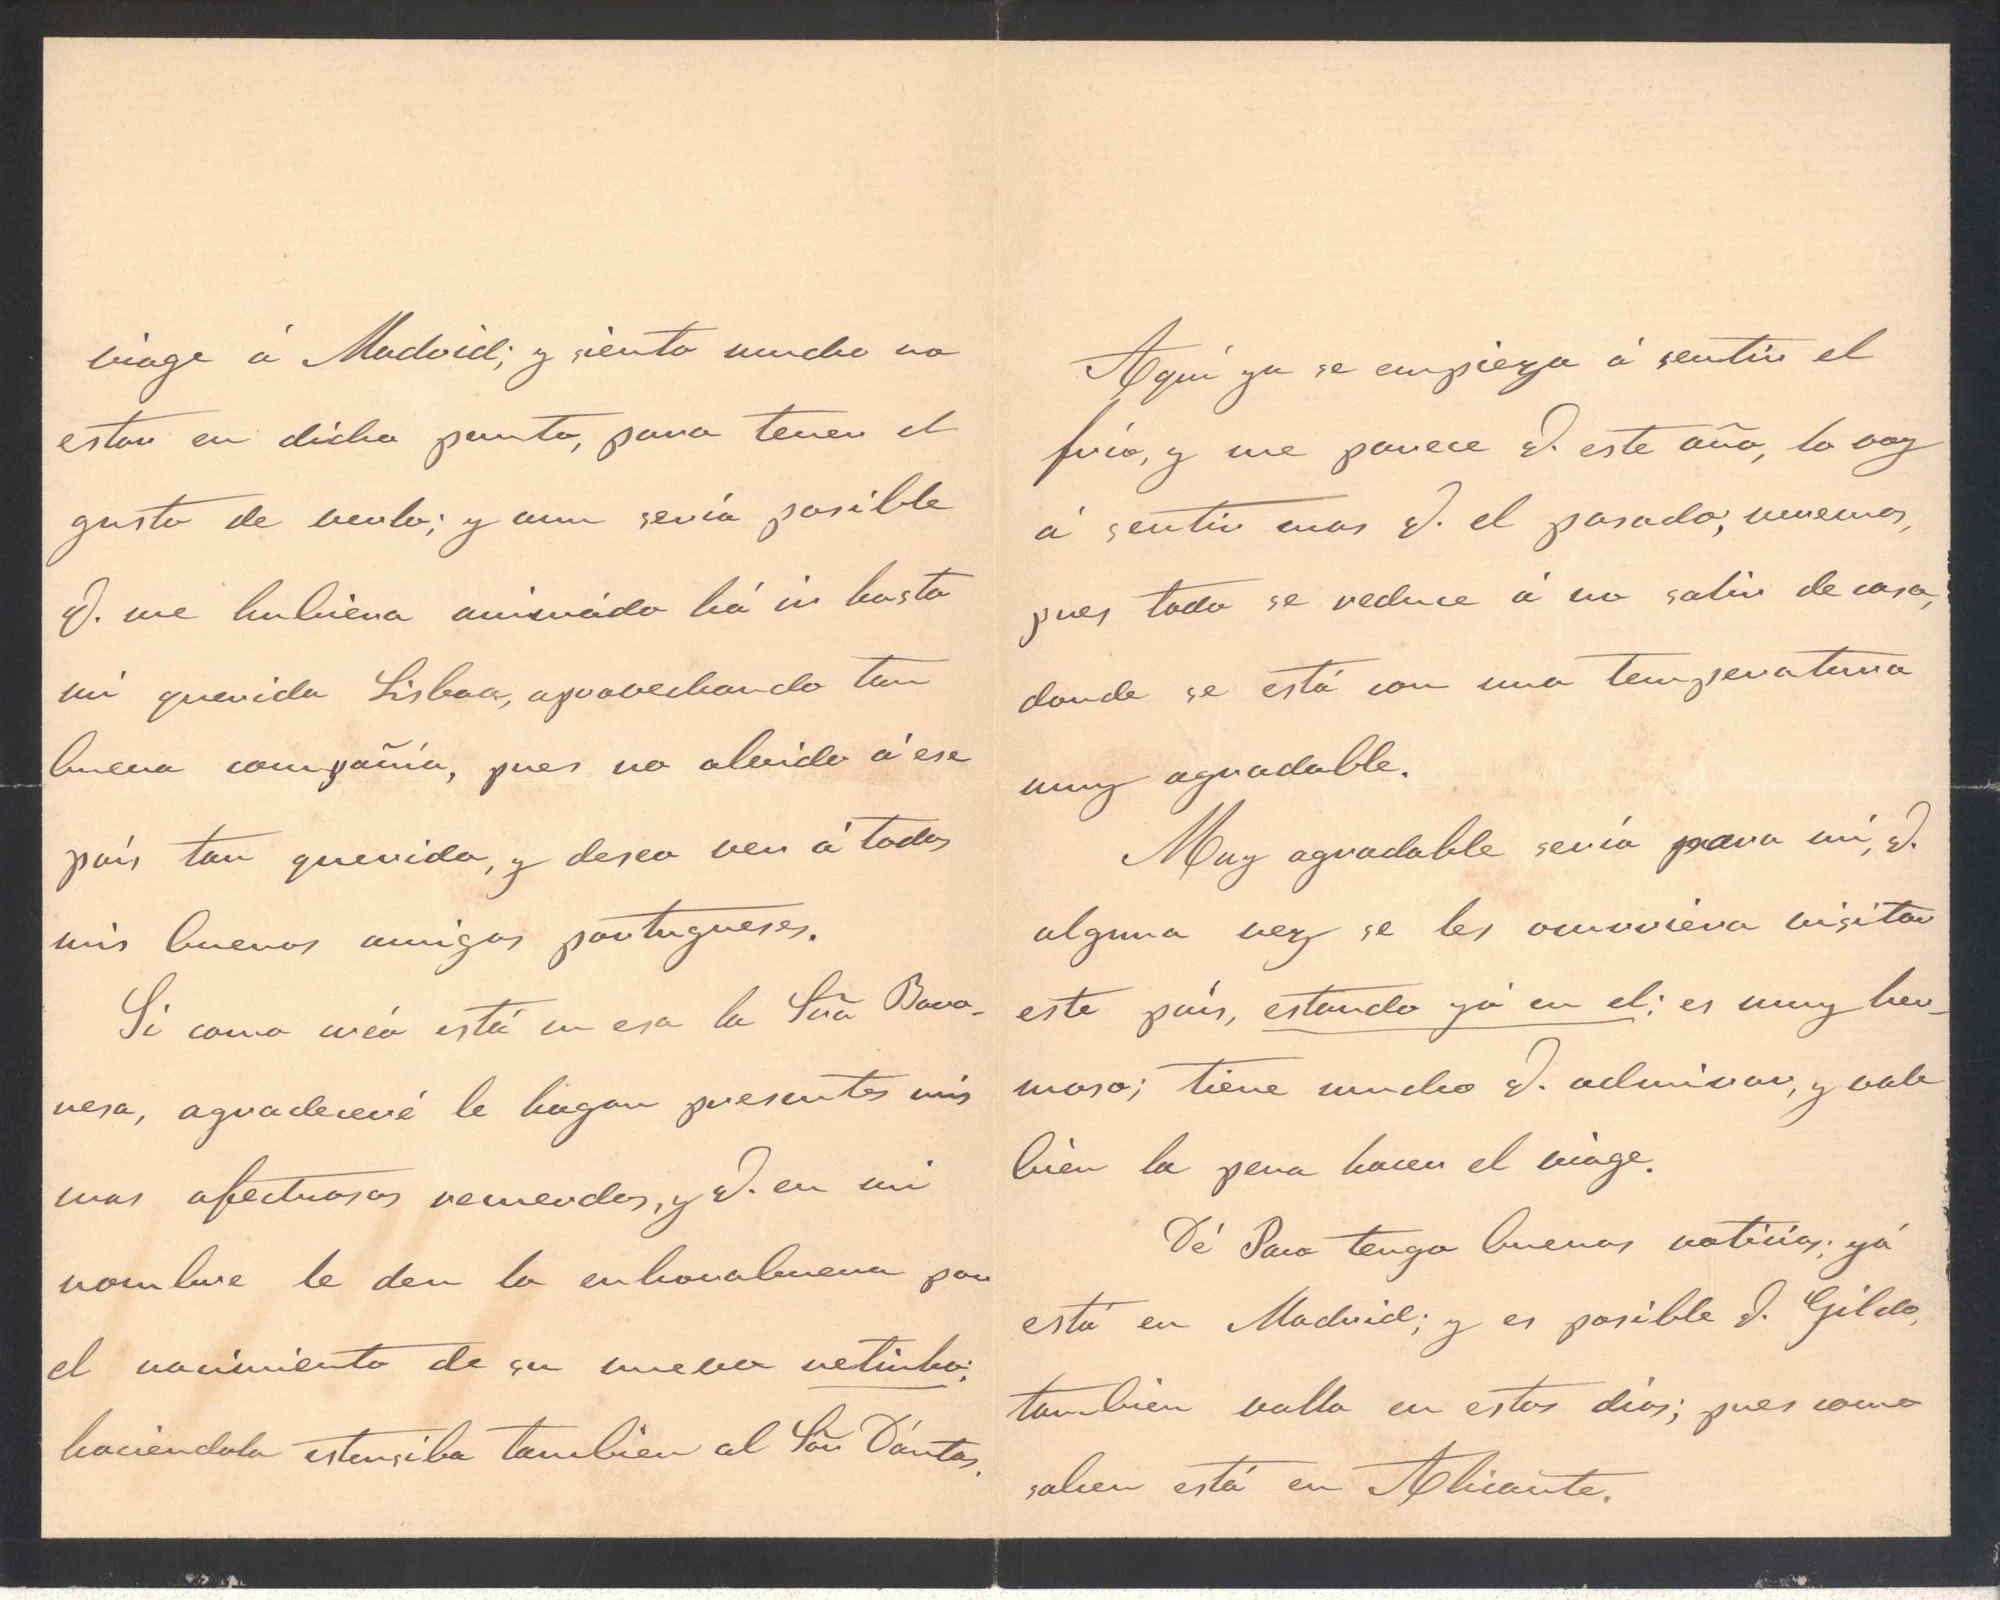 viage á Madrid; y siento mucho no
estar en dicho punto, para tener el
gusto de verlo; y aun sería posible
q. me hubiera animádo há ir hasta
mi querida Lisboa, aprovechando tan
buena compañía, pues no olvido á ese
país tan querido, y deseo ver á todos
mis buenos amigos portugueses.
Si como creó está en esa la Sra Baro-
nesa, agradeceré le hagan presentes mis
mas afectuosos recuerdos, y q. en mi
nombre le den la enhorabuena por
el nacimiento de su nuevo netinho;
haciendola estensiba tambien al Sõr Dántas.
Aquí ya se empieza á sentir el
frío, y me parece q. este año, lo voy
á sentir mas q. el pasado; veremos,
pues todo se reduce á no salir de casa,
donde se está con una temperatura
muy agradable.
Muy agradable sería para mí, q.
alguna vez se les ocurriera visitar
este país, estando yá en el; es muy her-
moso; tiene mucho q. admirar, y vale
bien la pena hacer el viage.
Dé Paco tengo buenas noticias; yá
está en Madrid; y es posible q. Gildo,
tambien valla en estos días; pues como
saben está en Alicante.